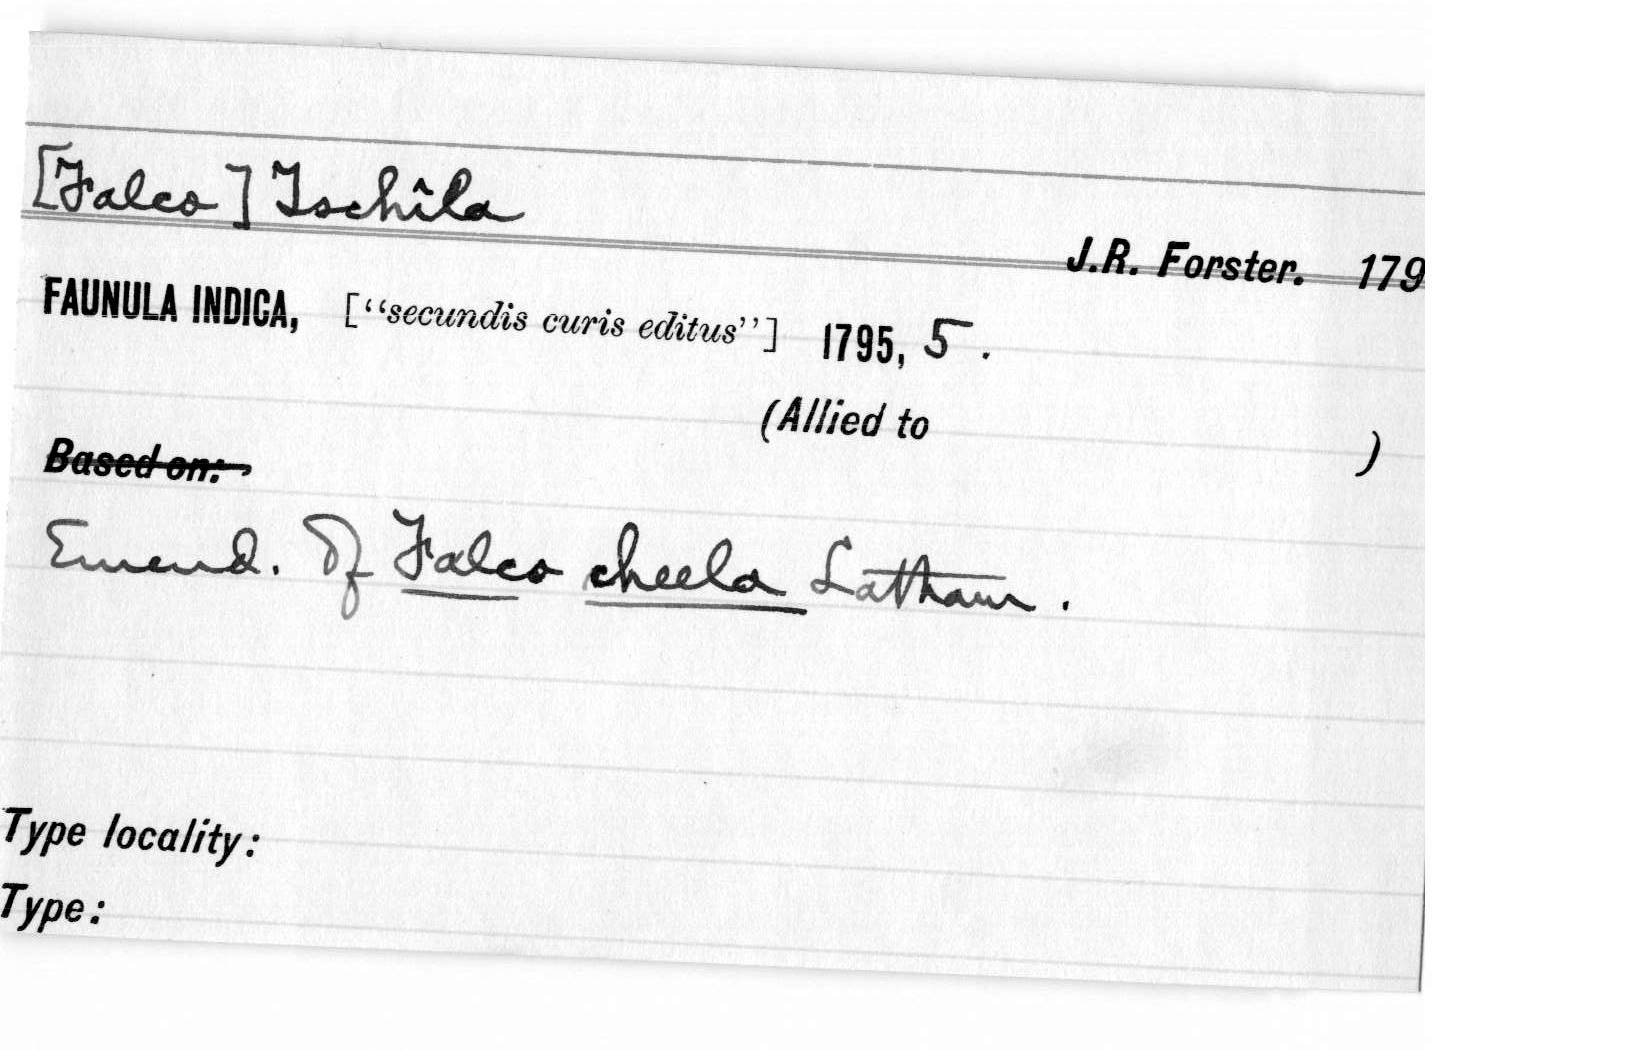 [Falco] Tschîla
J.R. Forster. 179
FAUNULA INDICA, ["secundis curis editus"] 1795, 5.
(Allied to )
Based on:
Emend. Of Falco cheela Latham.
Type locality:
Type: